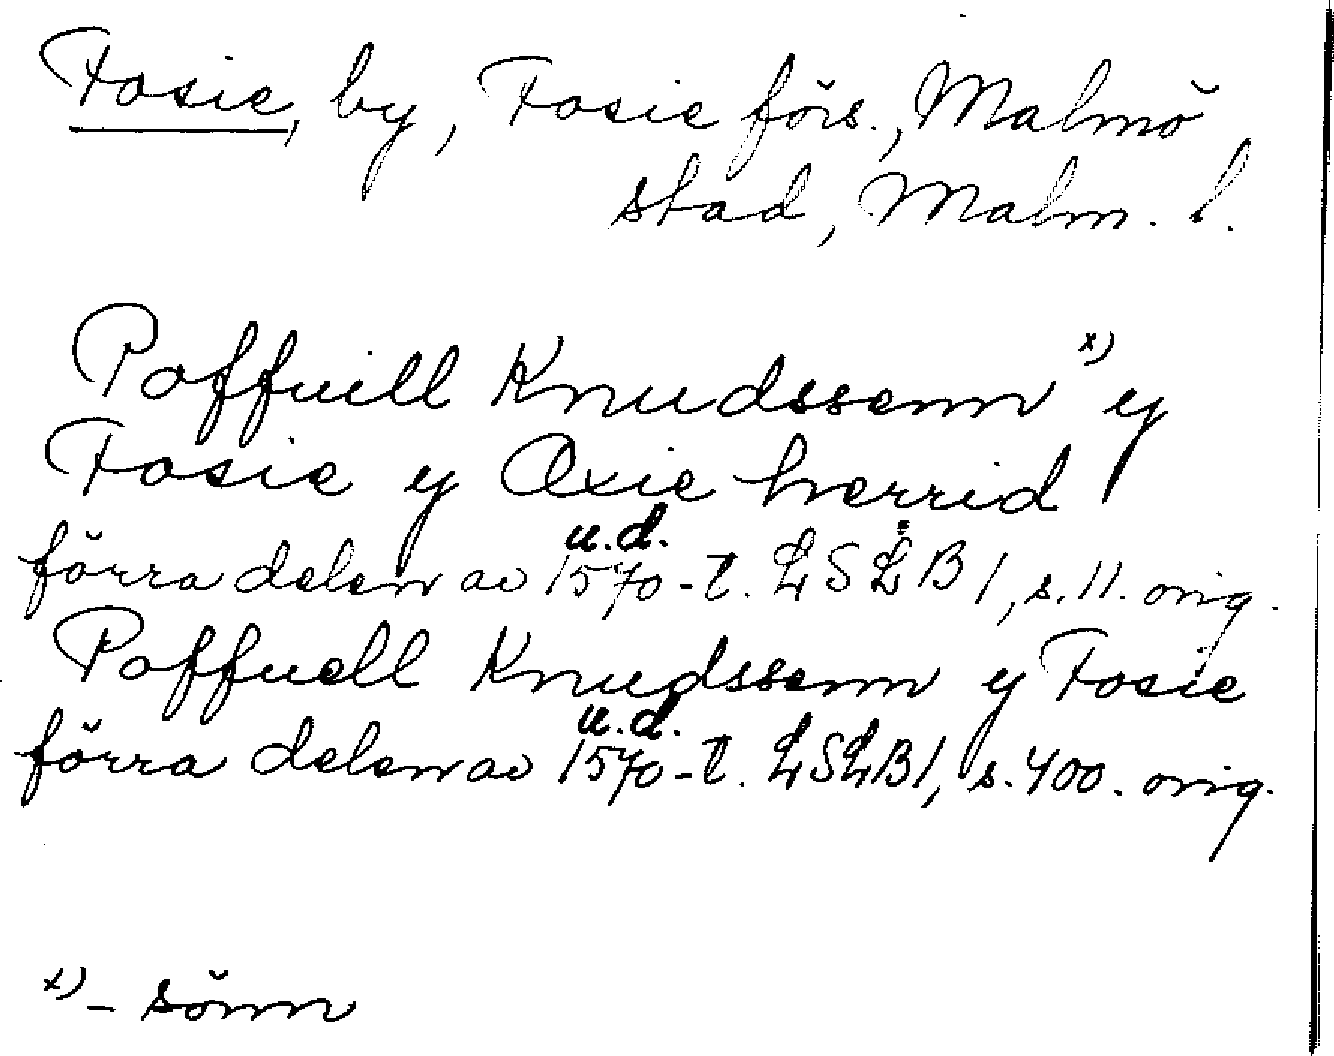 Fosie, by, Fosie förs., Malmö
stad, Malm. l.
Poffuill Knudssenn x) y
Fosie y Oxie herrid
u.d.
förra delen av 1570-t. LSLB 1, s. 11. orig.
Poffuell Knudssenn y Fosie
u.d.
förra delen av 1570-t. LSLB 1, s. 400. orig.
x) – sönn